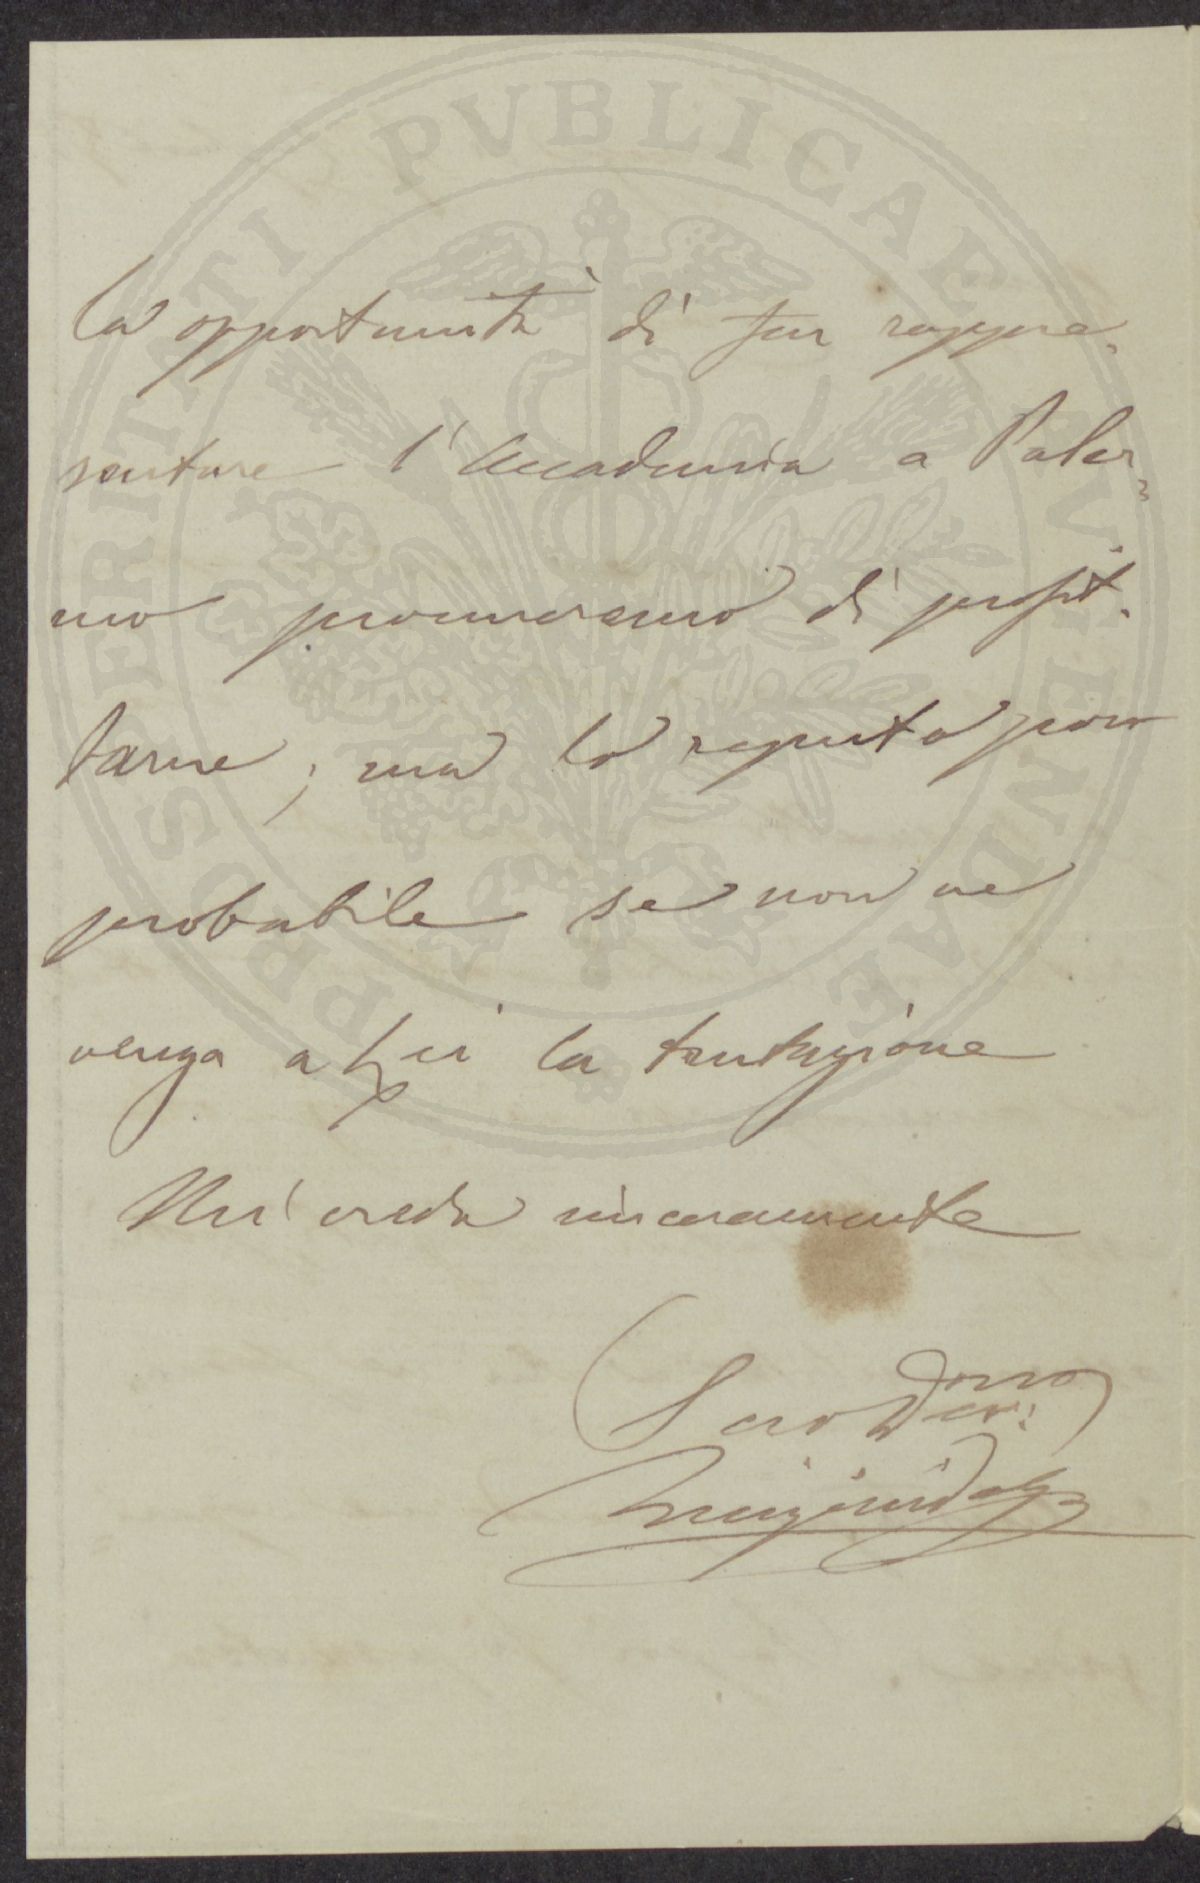 PROSPERITATI PVBLICAE AVGENDAE
la opportunità di far rappre-
sentare l'Accademia a Paler-
mo procureremo di profit-
tarne, ma lo reputo poco
probabile se non ne
venga a Lei la tentazione
Mi creda sinceramente
Suo Dev.mo